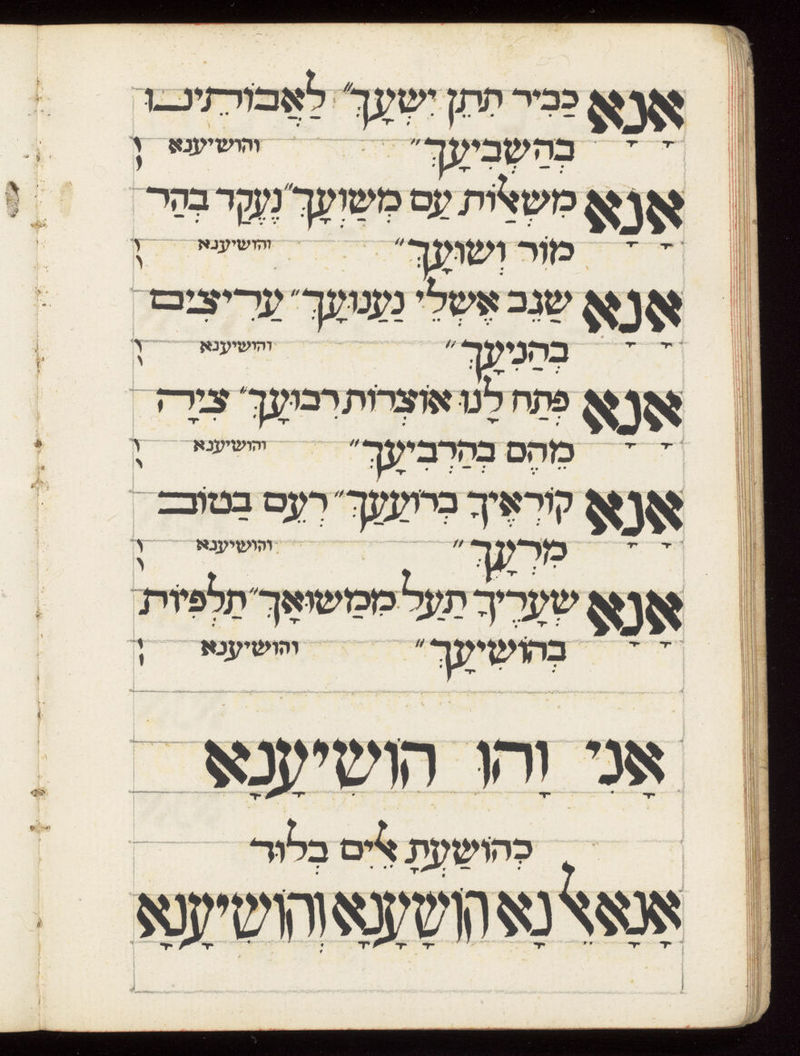 אָנָא כַּבִּיר תִּתֵּן יִשְׁעָךְ״ לַאֲבוֹתֵינוּ
בְּהַשְׁבִּיעָךְ״ והושיענא
אָנָא מִשְׁאֲלוֹת עַם מְשַׁוְּעָךְ״ נֶעֱקַד בְּהַר
מוֹר וְשׁוּעָךְ״ והושיענא
אָנָא שַׂגֵּב אֶשְׁלֵי נַעֲנוּעָךְ״ עָרִיצִים
בַּהֲנִיעָךְ״ והושיענא
אָנָא פְּתַח לָנוּ אוֹצְרוֹת רִבּוּעָךְ״ צִיָּה
מֵהֶם בְּהַרְבִּיעָךְ״ והושיענא
אָנָא קוֹרְאֶיךָ בְּרוֹעַעַךְ״ רְעֵם בְּטוּב
מִרְעָךְ״ והושיענא
אָנָא שְׁעָרֶיךָ תַּעַל מִמַּשּׁוּאָךְ״ תַּלְפִּיּוֹת
בְּהוֹשִׁיעָךְ״ והושיענא
אֲנִי וָהוּ הוֹשִׁיעָנָא
כְּהוֹשַׁעְתָּ אֵלִים בְּלוּד
אָנָא אֵל נָא הוֹשַׁעְנָא וְהוֹשִׁיעָנָא